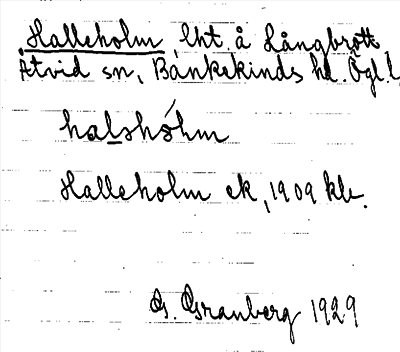 Halleholm, lht å Långbrött
Åtvid sn, Bankekinds hd. Ögl.l
halshóhm
Halleholm ek, 1909 kb.
G. Granberg 1929